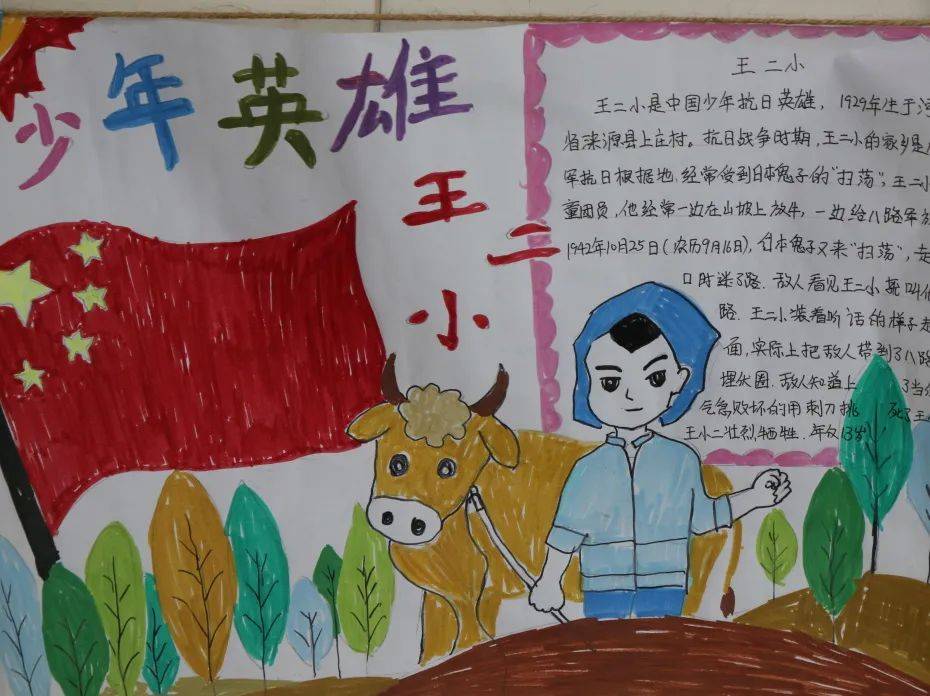 少年英雄
王
二
小
王二小
王二小是中国少年抗日英雄，1929年生于河
省涞源县上庄村。抗日战争时期，王二小的家乡是八
军抗日根据地，经常受到日本鬼子的“扫荡”，王二小
童团员，他经常一边在山坡上放牛，一边给八路军放
1942年10月25日（农历9月16日），日本鬼子又来“扫荡”，走
口时迷了路。敌人看见王二小就叫他
路。王二小装着听话的样子走
面，实际上把敌人带到了八路
埋伏圈，敌人知道上 了当
气急败坏的用刺刀挑 死了王
王小二壮烈牺牲，年仅13岁！